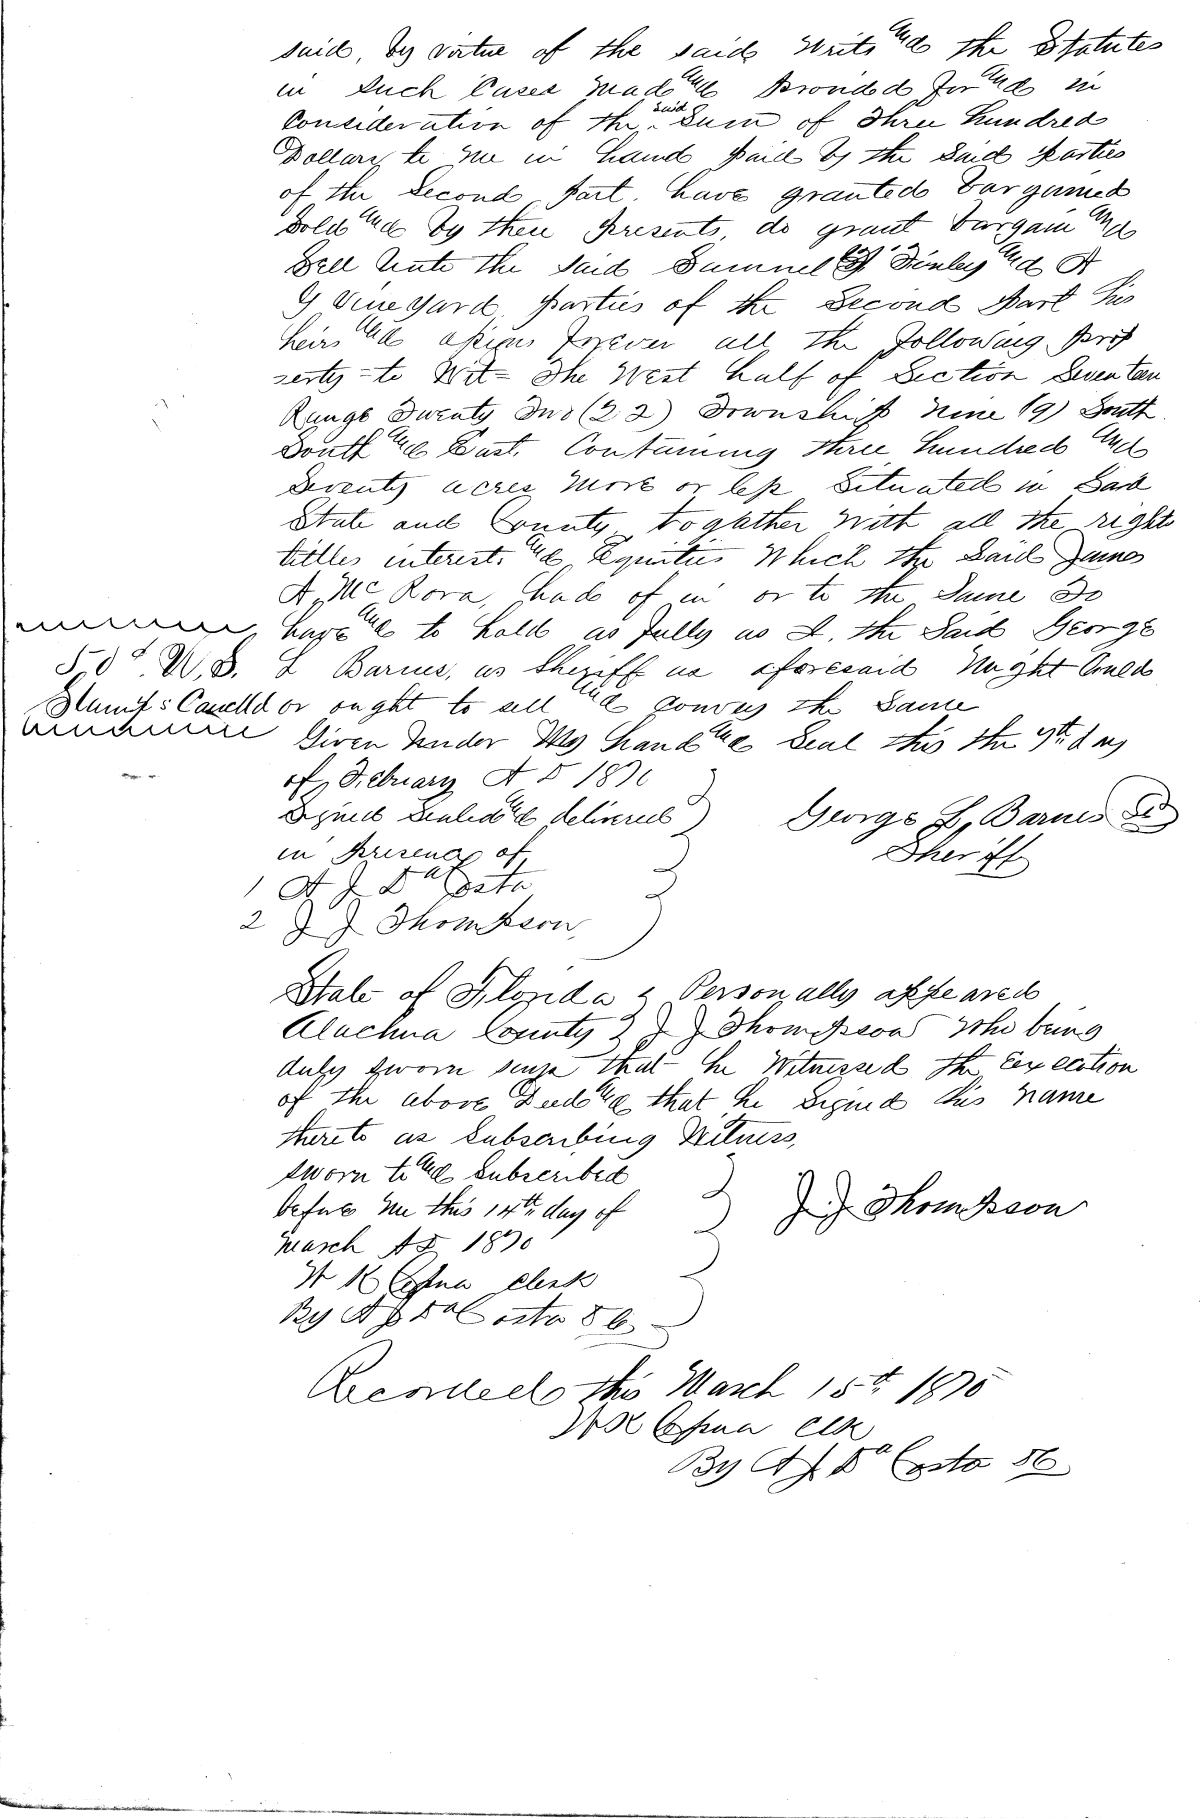 said, by virtue of the said writs and the Statutes
in Such Cases Made and Provided for and in
Consideration of the said Sum of Three hundred
Dollars to me in hand paid by the Said parties
of the Second part. have granted bargained
Sold and by these presents, do grant bargain and
Sell Unto the Said Samuel Y Finley and A
G Vineyard, parties of the Second part his
heirs and assigns forever all the following prop
erty = to Wit = The West half of Section Seventeen
Range Twenty Two (22) Township Nine (9) South
South and East. Containing three hundred and
Seventy acres more or less Situated in Said
State and County, togather with all the right
tittles interests and Equities Which the Said James
A, McRora, had of in or to the Same To
have and to hold as fully as I, the Said George
50c U.S. L Barnes, as Sheriff as aforesaid Might Could
Stamps Cancelld or ought to sell and convey the Same
Given Under My hand and Seal this the 7th day
of February A D 1870
Signed Sealed and delivered
in presence of
George L, Barnes
Sheriff
1 A J DaCosta
2 J J Thompson,
State of Florida Personally appeared
Alachua County J J Thompson who being
duly sworn says that he Witnessed the Execution
of the above Deed and that he Signed his name
thereto as Subscribing Witness,
sworn to and Subscribed
before me this 14th day of
J. J Thompson
March A D 1870
Clerk
By A J DaCosta
Recorded this March 15th 1870
Clk
By A J DaCosta